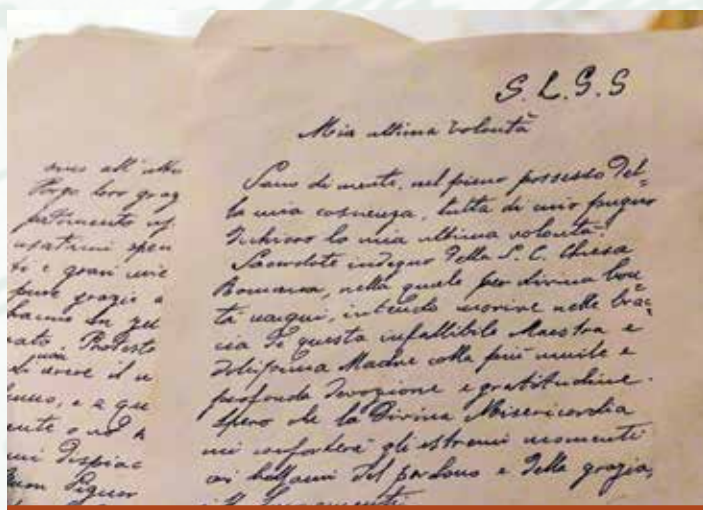 S. L. G. S
Mia ultima volontà
Sano di mente, nel pieno possesso del=
la mia coscienza, tutta di mio pugno
dichiaro la mia ultima volontà.
Sacerdote indegno della S. C. Chiesa
Romana, nella quale per divina bon=
tà nacqui, intendo morire nelle brac=
cia di questa infallibile Maestra e
dolcissima Madre colla più umile e
profonda devozione e gratitudine.
Spero che la Divina Misericordia
mi conforterà gli estremi momenti
coi balsami del perdono e della grazia,
loro graz
e gravi
grazie a
hanno
Protesto
di avere il
e a que
ente o
mi dispiac